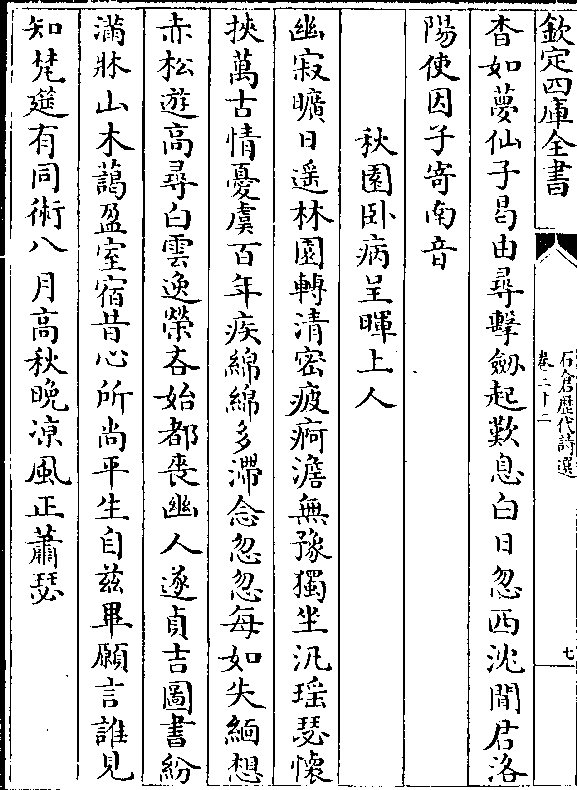 欽定四庫全書
石倉歴代詩選
卷二十二
七
杳如夢仙子曷由尋擊劔起歎息白日忽西沈聞君洛
陽使因子寄南音
秋園卧病呈暉上人
幽寂曠日遥林園轉清密疲痾澹無豫獨坐汎瑶瑟懷
挾萬古情憂虞百年疾綿綿多滯念忽忽每如失緬想
赤松遊高尋白雲逸榮吝始都喪幽人遂貞吉圖書紛
滿牀山木藹盈室宿昔心所尚平生自兹畢願言誰見
知梵筵有同術八月高秋晚凉風正蕭瑟